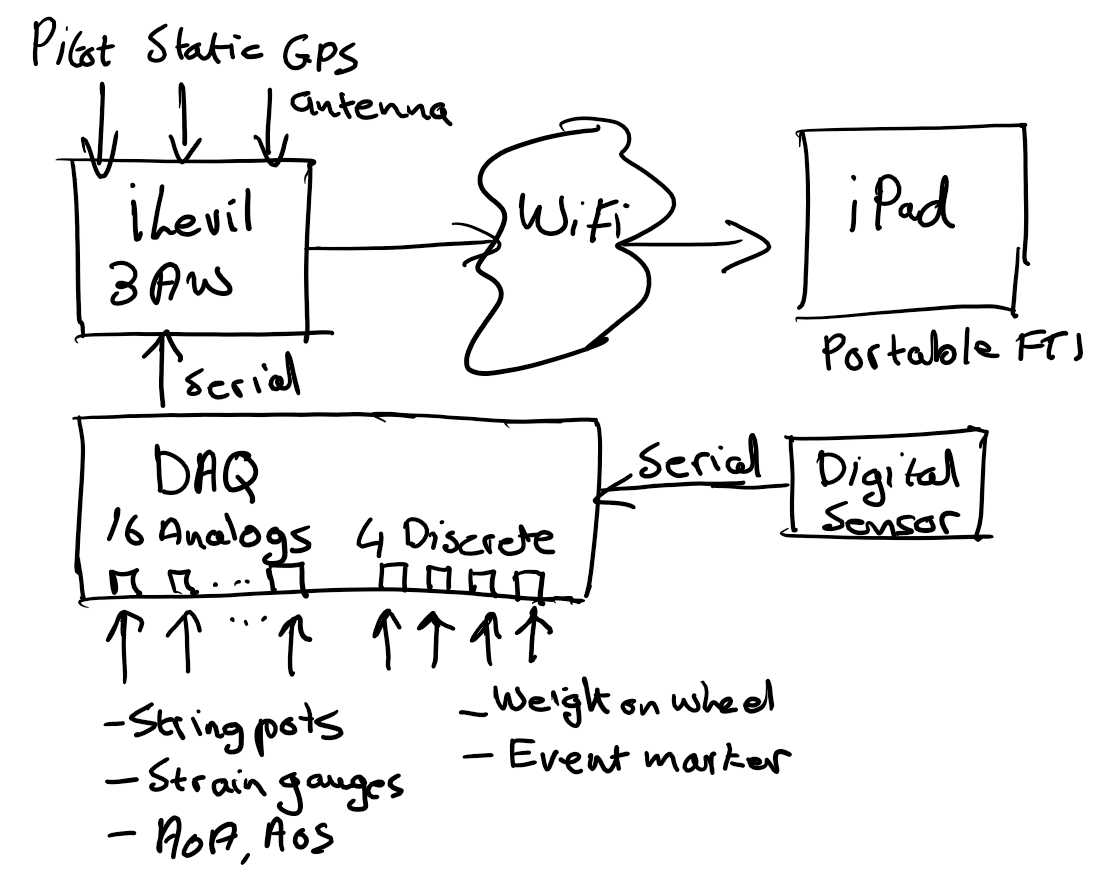 Pitot Static GPS
antenna
iLevil
3 AW
WiFi
iPad
Portable FTI
Serial
DAQ
16 Analogs 4 Discrete
... 
...
Serial
Digital
Sensor
- String pots
- Strain gauges
- AoA, AoS
- Weight on wheel
- Event marker